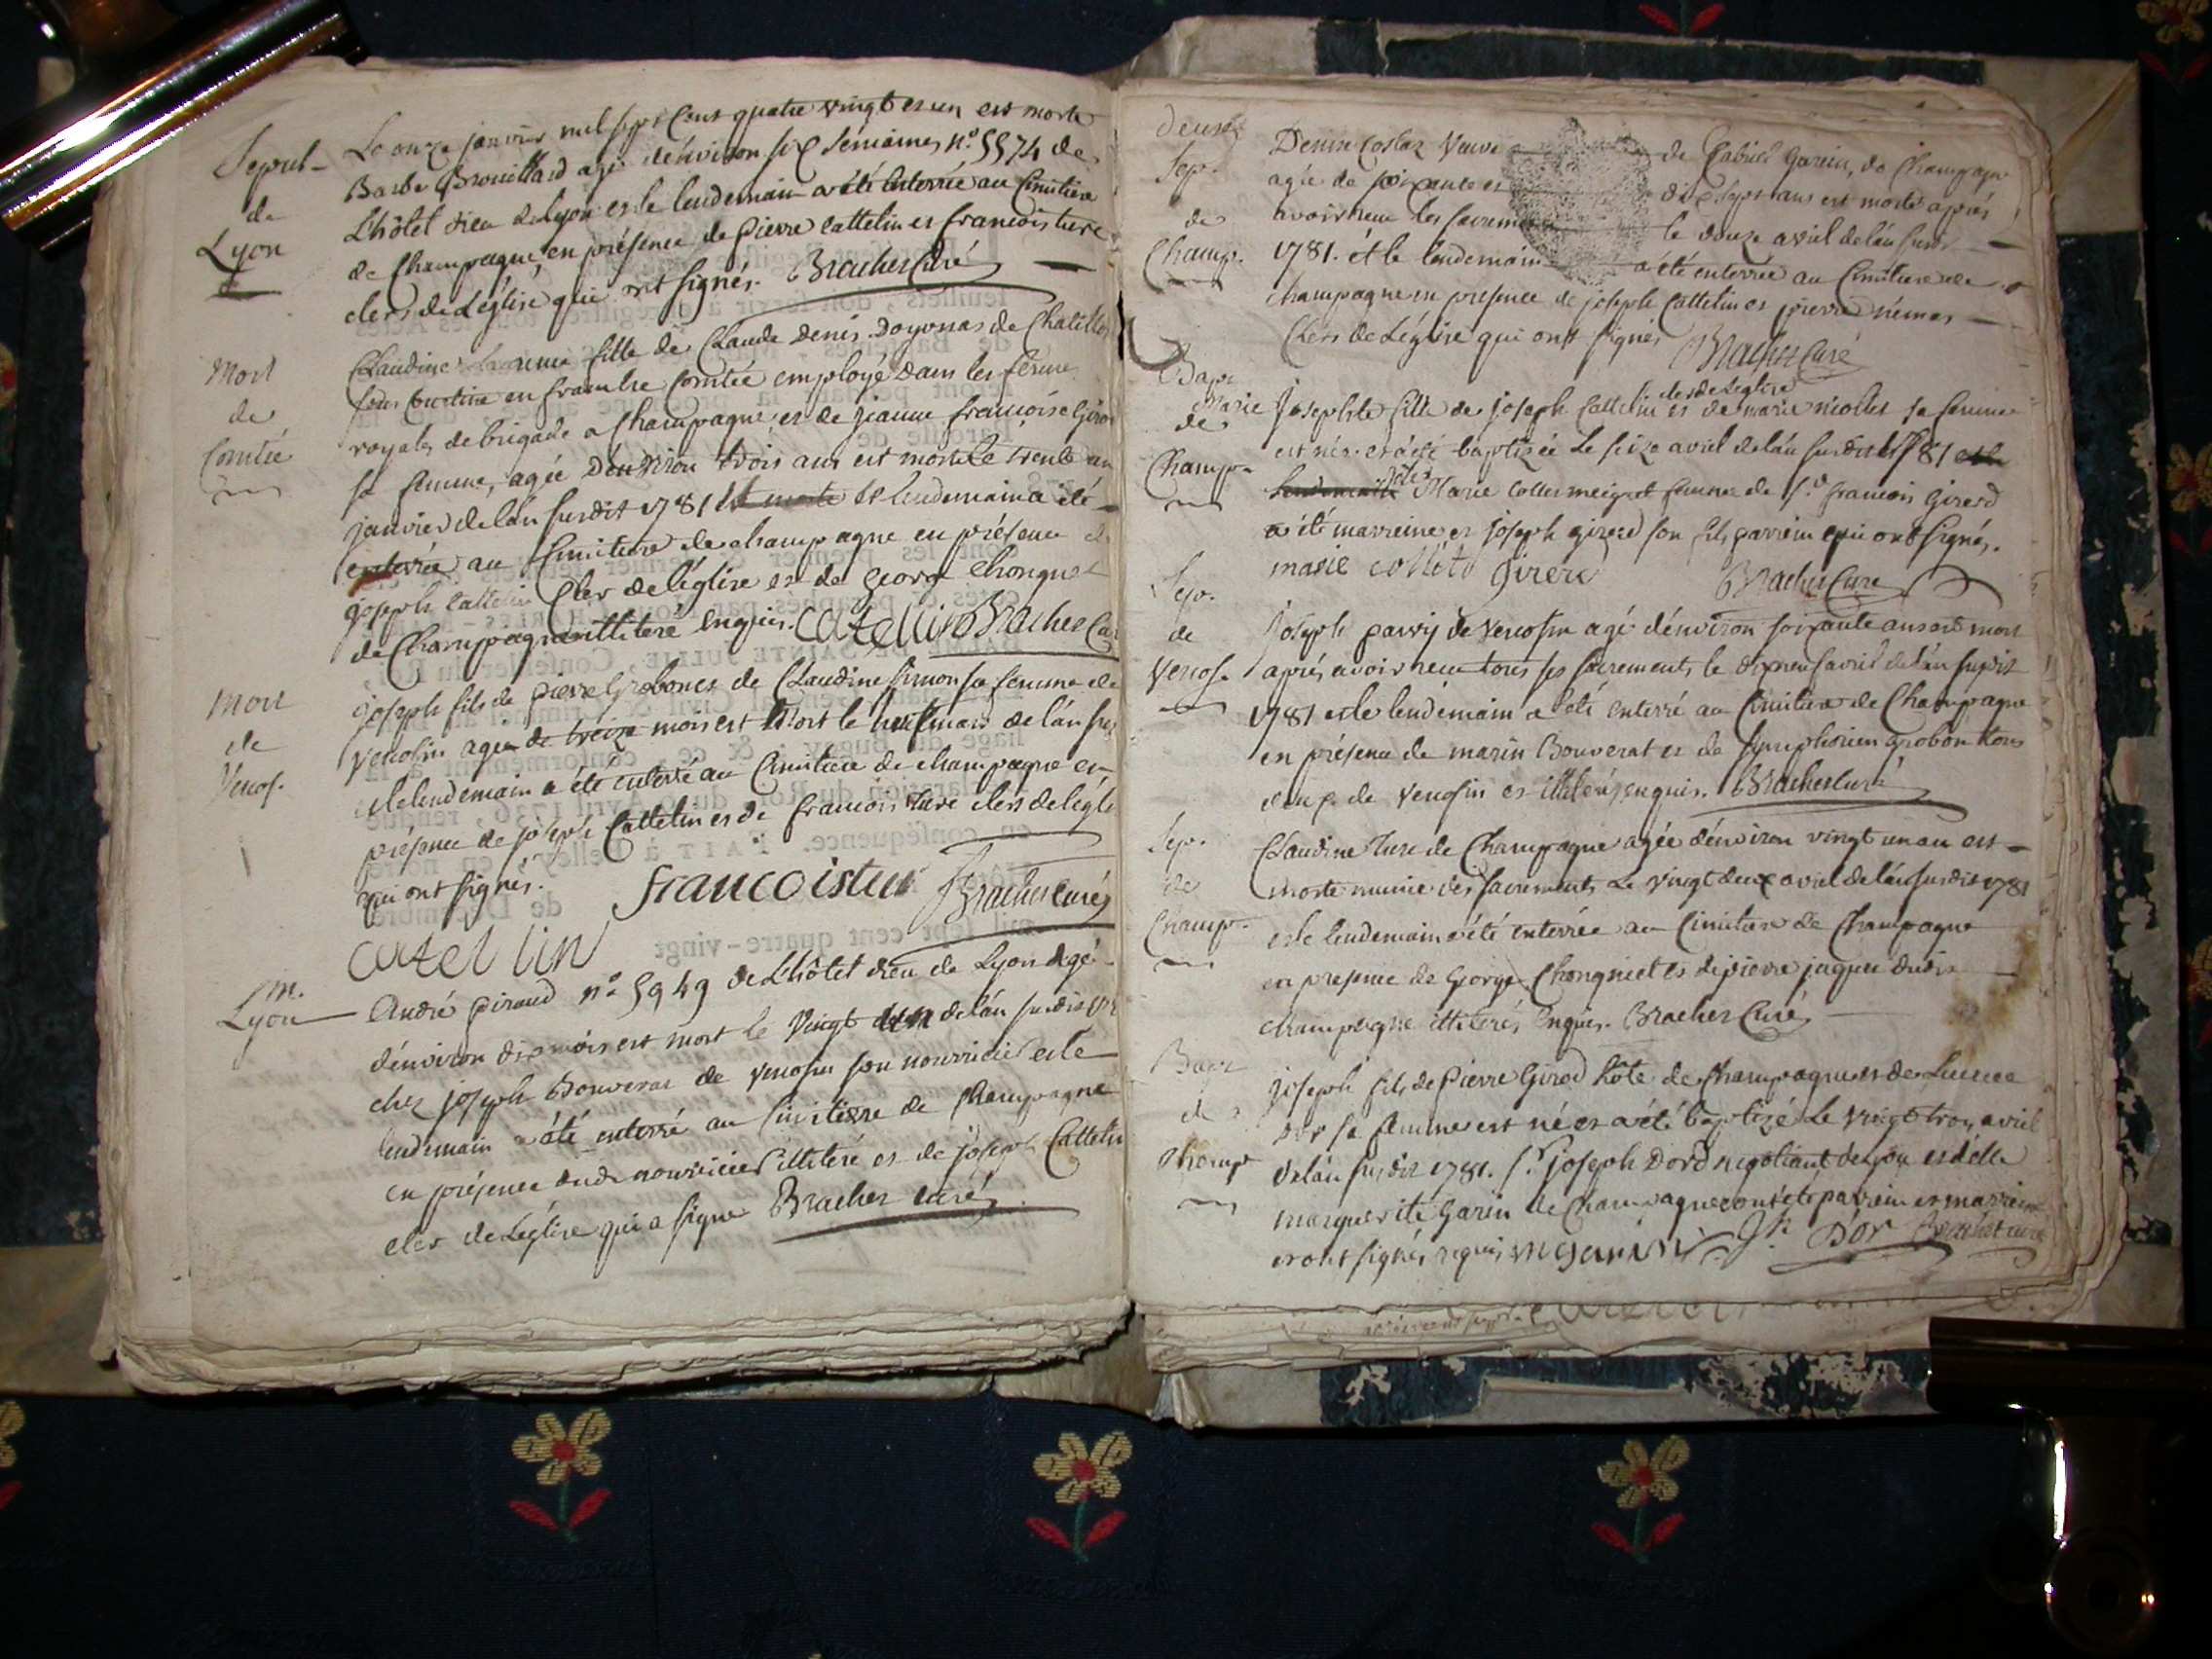 Sepul-
de
Lyon
Le onze janvier mil sept cent quatre vingt et un est morte
Barbe Brouillard agée dénviron six sémaines, n.o 5574 de
L'hôtel dieu de Lyon et le lendemain a été enterrée au Cimitiere
de Champagne en présence de pierre cattelin et francois ture
clers de L'église qui ont signés. Brachet Curé
mort
de
Comtée
Claudine fille de Claude denis Doyonnas de
en franche Comtée employé dans les fermes
royales de brigade a Champagne et de jeanne francoise
sa femme, agée Denviron trois ans est morte le trente un
janvier de lán susdit 1781 le lendemain a été
enterrée au Cimitiere de champagne en présence de
joseph cattelin Cler de léglise et de George Chongnet
de Champagne illiteré enquis. catellin Brachet
mort
de
Venos.
joseph fils de pierre Grobon et de Claudine simon sa femme de
venosin agé de treize mois est mort le huit mars de lán
et le lendemain a été enterré au Cimitiere de champagne en
présence de joseph Cattelin et de francois Ture clers de légl
qui ont signés. francoisture Brachet curé
catellin
m.
Lyon
André piraud n.o 5949 de L'hôtel dieu de Lyon agé
dénviron dix mois est mort le vingt de lán susdit
chez joseph Bouverat de venosin son nourricier et le
lendemain a été enterré au Cimitierre de Champagne
en présence dudit nourricier illiteré et de joseph Cattelin
cler de Léglise qui a signé Brachet curé
deux
Sep.
de
Champ.
Denise Costaz veuve de Gabriel Garin, de Champagne
agée de soixante et dix sept ans est morte aprés
avoir recu les sacremens le douze avril de lán susdit
1781. et le lendemain a été enterrée au Cimitiere de
champagne en presence de joseph Cattelin et pierre
Clers de L'église qui ont signés Brachet Curé
Bapt
de
Champ.
clers de Léglise
Marie Josephte fille de joseph Cattelin et de marie nicollet sa femme
est née et a été baptizée le seize avril de lán susdit 1781 et le
lendemain Marie Collet meignet femme de S.r francois Girerd
a été marreine et joseph girerd son fils parrein qui ont signés.
marie Girerd Brachet Cure
Sep.
de
Venos.
joseph parry de venosin agé dénviron soixante ans est mort
aprés avoir recu tous ses sacrements le dix neuf avril de lán susdit
1781 et le lendemain a été enterré au Cimitiere de Champagne
en présence de marin Bouverat et de symphorien grobon tous
deux de venosin et illiterés enquis. Brachet Curé
Sep.
de
Champ.
Claudine Ture de Champagne agée dénviron vingt un an est
morte munie des sacrements le vingt deux avril de lán susdit 1781
et le lendemain a été enterrée au Cimitiere de Champagne
en presence de George Chongniet et de pierre jaquin dudit
champagne illiterés enquis. Brachet Curé
Bapt
de
Champ
joseph fils de pierre Girod hôte de Champagne et de Lucrece
Dor sa femme est né et a été baptizé le vingt trois avril
de lán susdit 1781. S.r joseph Dor negotiant de Lyon et delle
marguerite garin de Champagne ont été parrein et marreine
et ont signés requis m garin Jh Dor Brachet curé